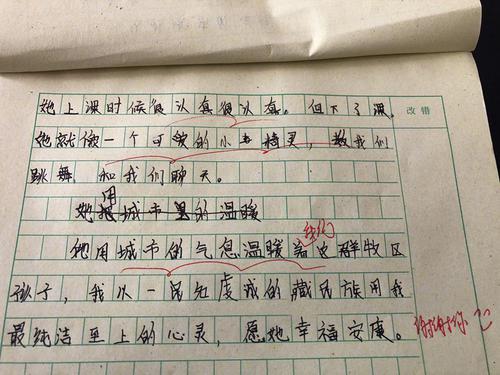 她上课时候很认真很认真。但下了课。 改错
她就像一个可爱的小精灵，教我们
跳舞 和我们聊天。
她用城市里的温暖
我们
她用城市的气息温暖着这群牧区
孩子，我以一民知虔诚的藏民族用我
最纯洁至上的心灵，愿她幸福安康。谢谢你